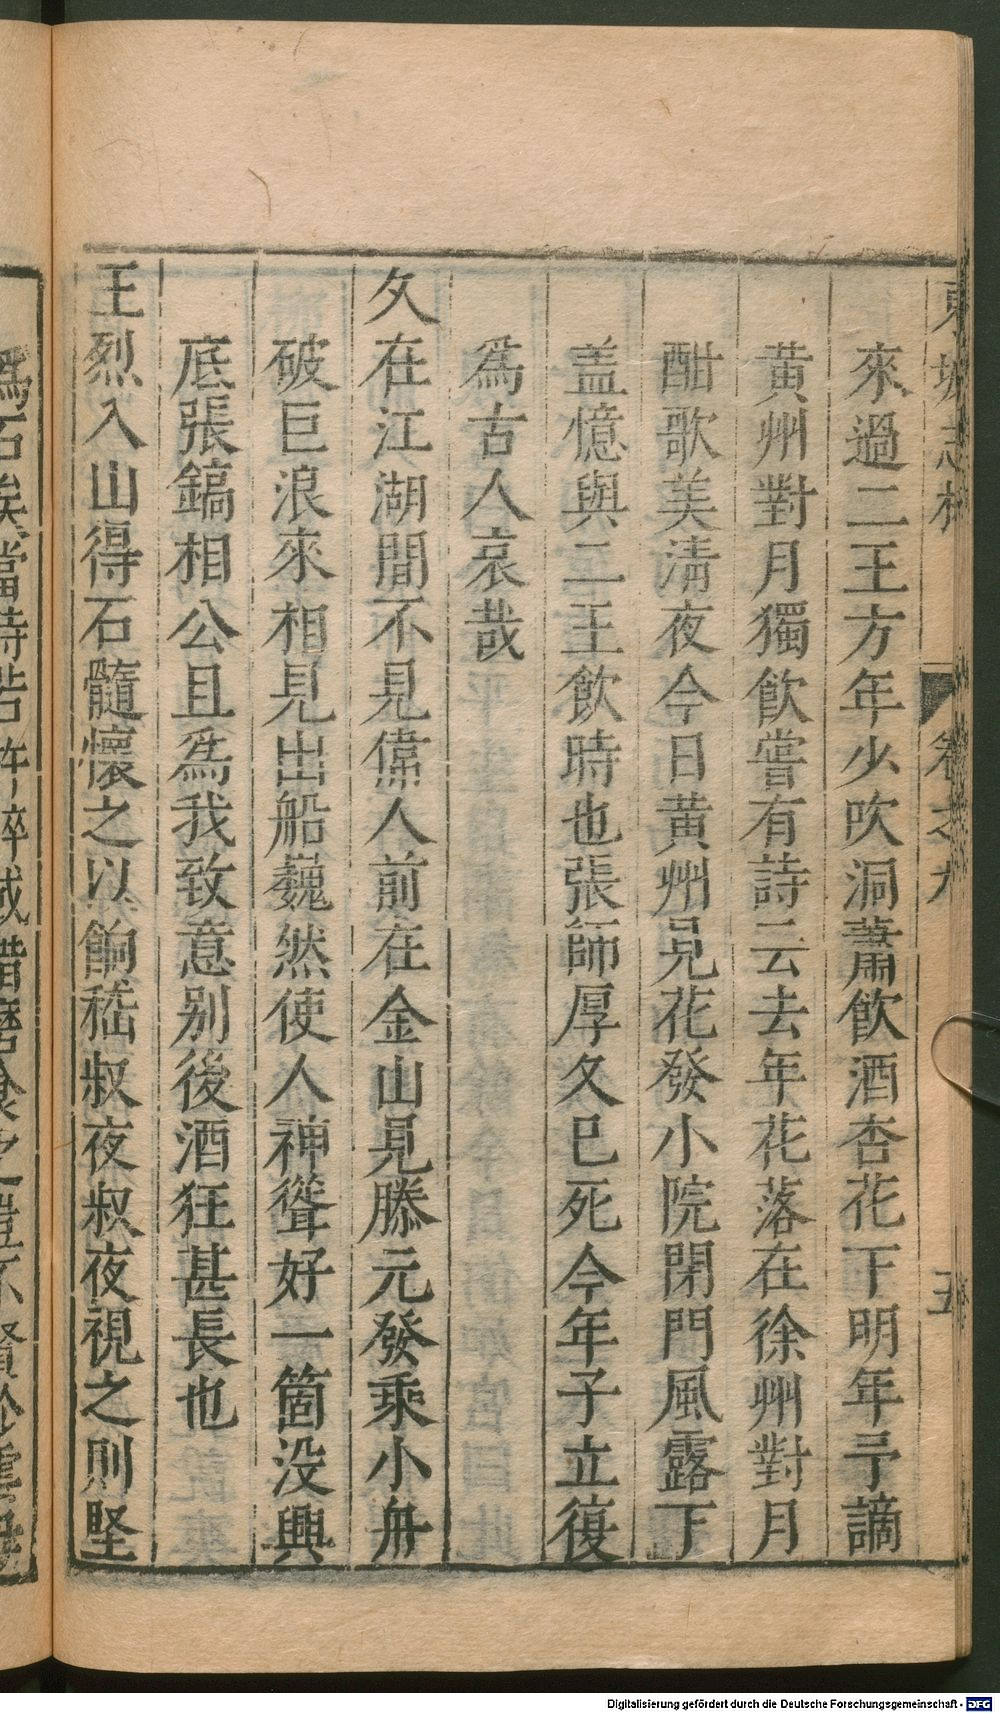 東坡志林 卷之九 五
來過二王方年少吹洞蕭飲酒杏花下明年予謫
黃州對月獨飲嘗有詩云去年花落在徐州對月
酣歌美清夜今日黃州見花發小院閉門風露下
盖憶與二王飲時也張師厚久已死今年子立復
爲古人哀哉
久在江湖間不見偉人前在金山見滕元發乘小舟
破巨浪來相見出船巍然使人神聳好一箇没興
底張鎬相公且爲我致意别後酒狂甚長也
王烈入山得石髓懷之以餉嵇叔夜叔夜視之則堅
爲石矣當時若杵碎或錯磨食之豈不賢於雲母
Digitalisierung gefördert durch die Deutsche Forschungsgemeinschaft - DFG